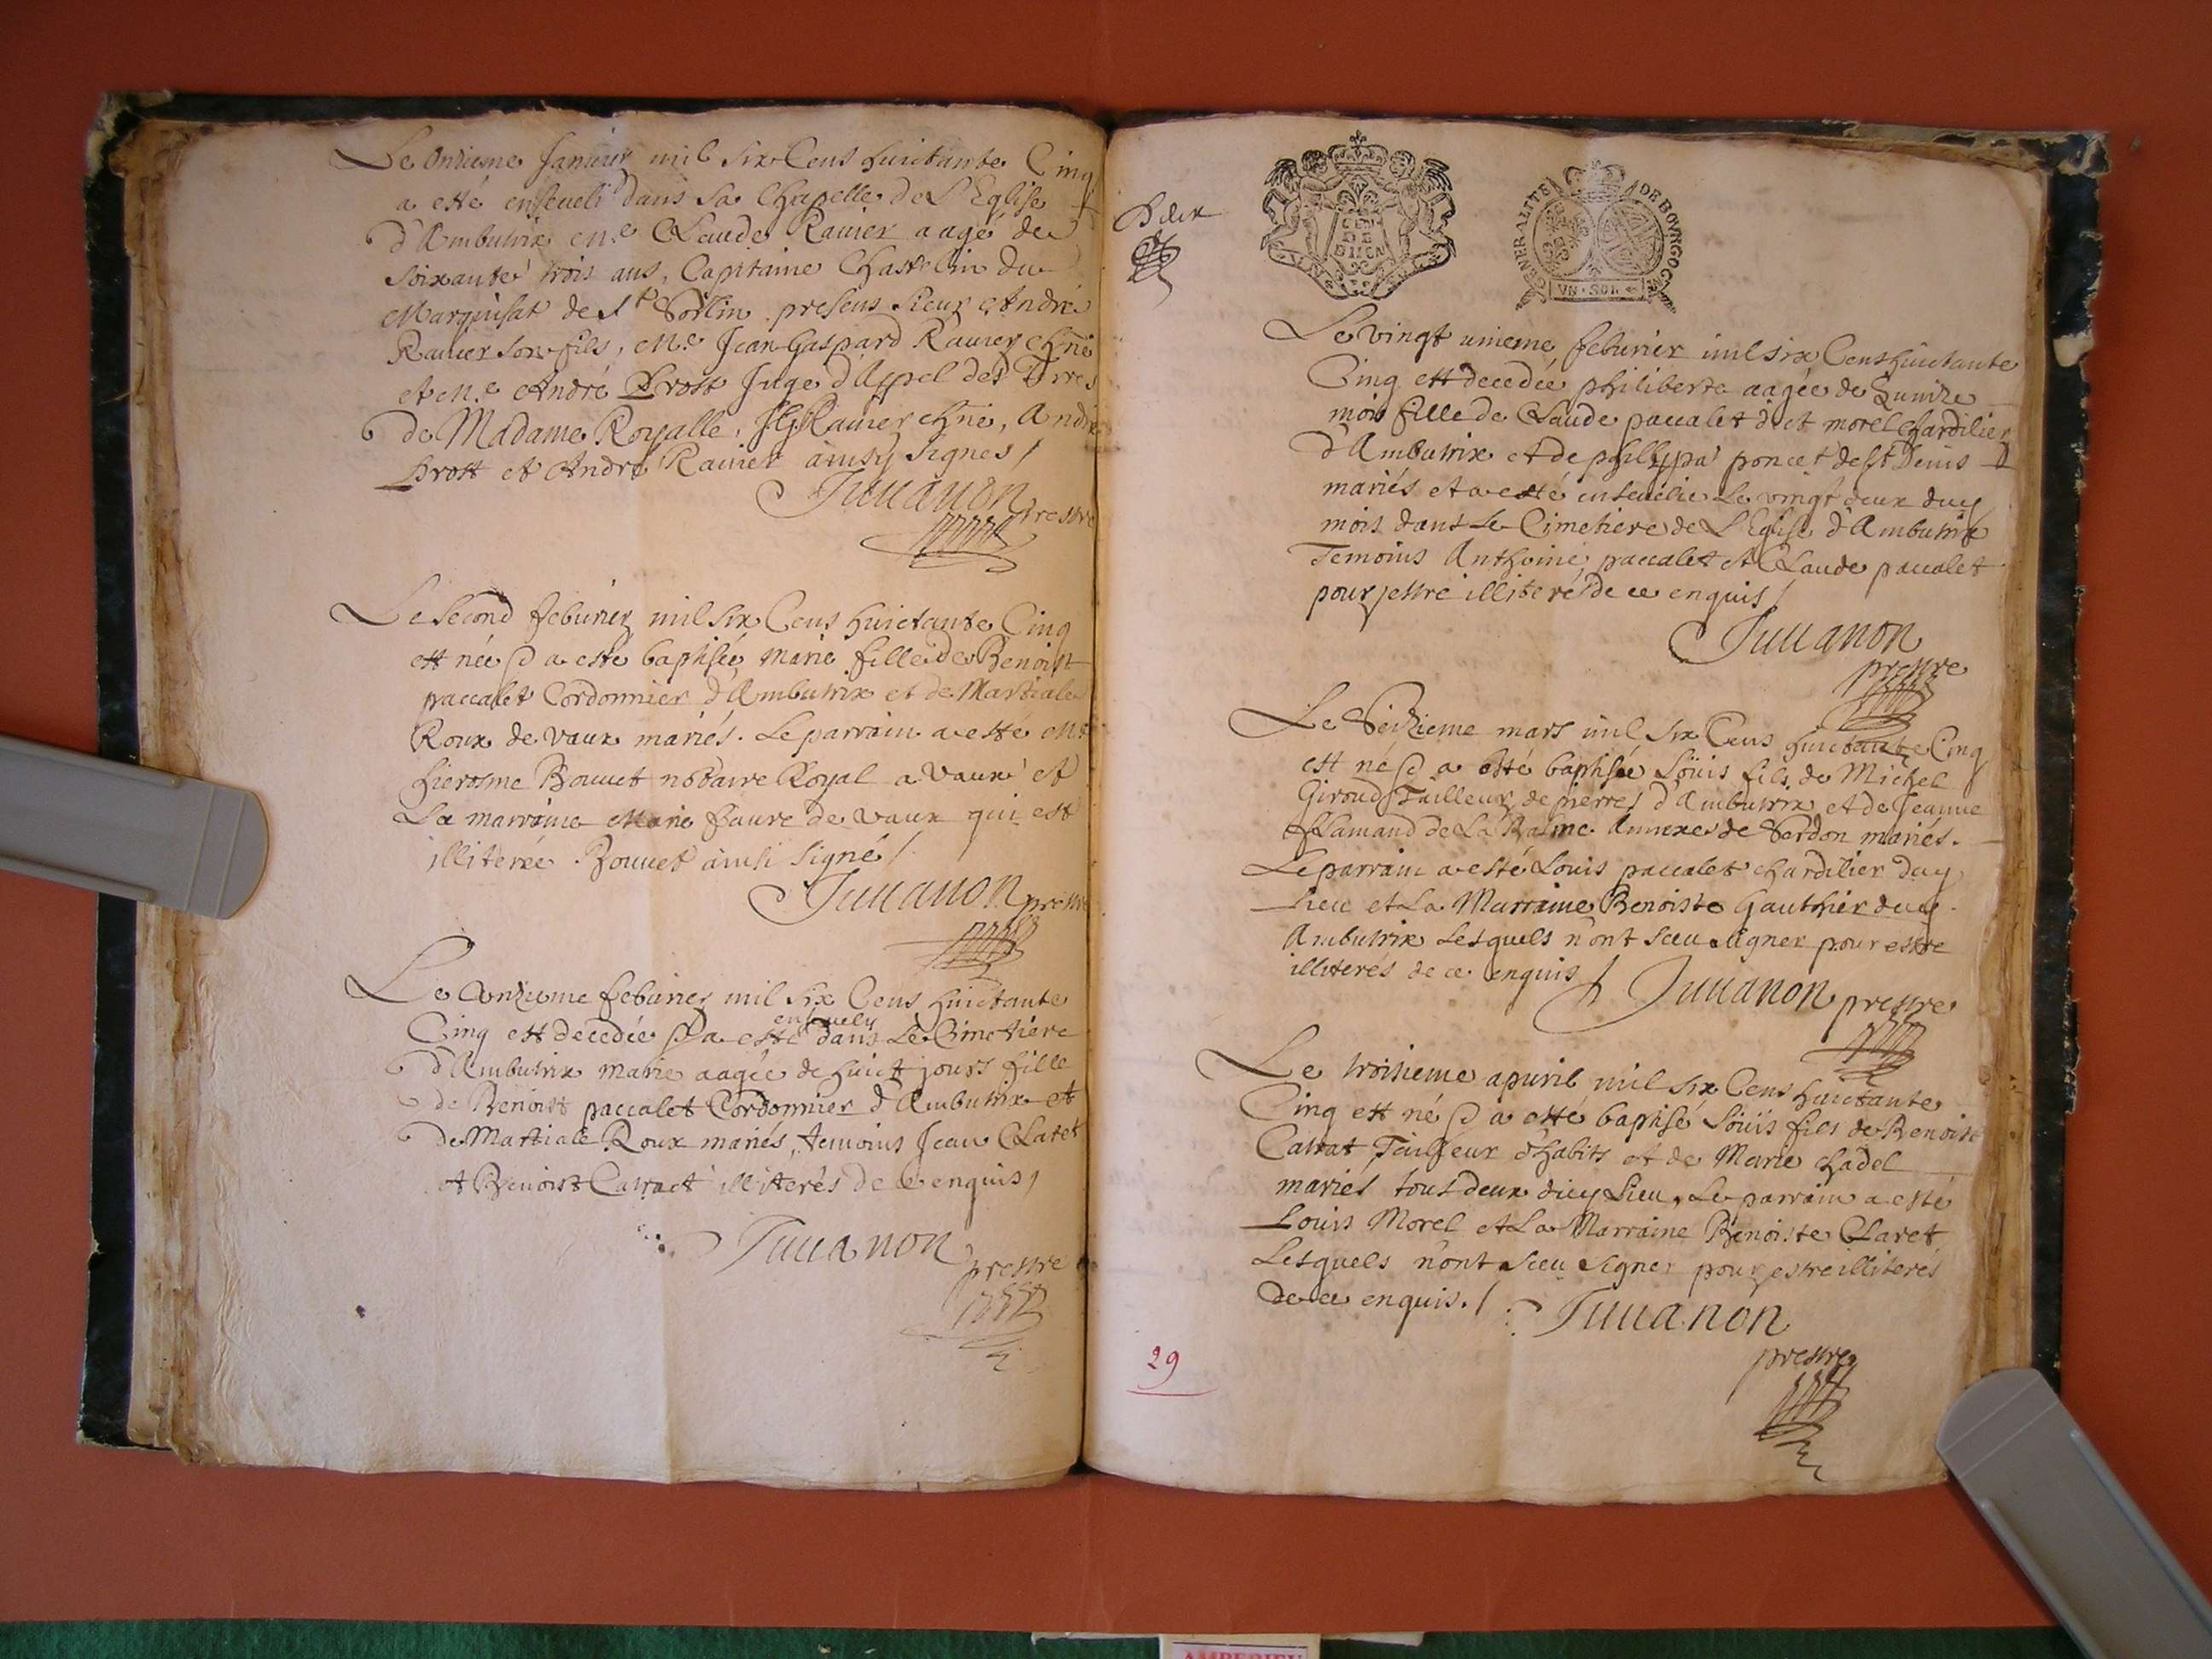 Le Onzieme Januier mil six Cens huictante Cinq
a esté enseueli dans sa Chapelle de L'Eglise
d'Ambutrix me Claude Rauier aagé de
soixante trois ans, Capitaine Chastelin du
Marquisat de St Sorlin presens Sieur André
Rauier son fils, Me Jean Gaspard Rauier chne
et Me André Prost Juge d'Appel des Terres
de Madame Royalle, Rauier chne, André
Prost et André Rauier ainsy signes /
Juuanon prestre
Le second feburier mil six Cens huictante Cinq
est née & a esté baptisée Marie fille de Benoist
paccalet Cordonnier d'Ambutrix et de Martiale
Roux de vaux mariés. Le parrain a esté Me
hierosme Bouuet nottaire Royal a vaux et
La marraine Marie faure de vaux qui est
illiterée. Bouuet ainsi signé /
Juuanon prestre
Le Onzieme feburier mil six Cens huictante
Cinq est decedée & a esté enseuely dans Le Cimetiere
d'Ambutrix marie aagée de huict jours fille
de Benoist paccalet Cordonnier d'Ambutrix et
de Martiale Roux mariés, temoins Jean Claret
et Benoist Catract illiterés de ce enquis /
Juuanon
prestre
GENERALITE DE BOVRGOGNE
VN SOL
Le vingt unieme feburier mil six Cens huictante
Cinq est decedée philiberte aagée de Quinze
mois fille de Claude paccalet dict morel Chardilier
d'Ambutrix et de phillippa poncet de St Denis
mariés et a esté enseuelie Le vingt deux duy
mois dans Le Cimetiere de L'Eglise d'Ambutrix
Temoins Anthoine paccalet et Claude paccalet
pour estre illiterés de ce enquis /
Juuanon
prestre
Le Seizieme mars mil six Cens huictante Cinq
est né & a esté baptisée Loüis fils de Michel
Giroud Tailleur de pierres d'Ambutrix et de Jeanne
fflamand de La Balme Annexe de Serdon mariés.
Le parrain a esté Louis paccalet chardilier duy
Lieu et La Marraine Benoiste Gauthier duy
Ambutrix Lesquels n'ont sceu signer pour estre
illiterés de ce enquis / Juuanon prestre
Le troisieme apuril mil six Cens huictante
Cinq est né & a esté baptisé Loüis fils de Benoist
Catrat Tailleur d'habits et de Marie chadel
mariés tous deux diey Lieu, Le parrain a esté
Louis Morel et La Marraine Benoiste Claret
Lesquels n'ont sceu signer pour estre illiterés
de ce enquis. / Juuanon
prestre
29